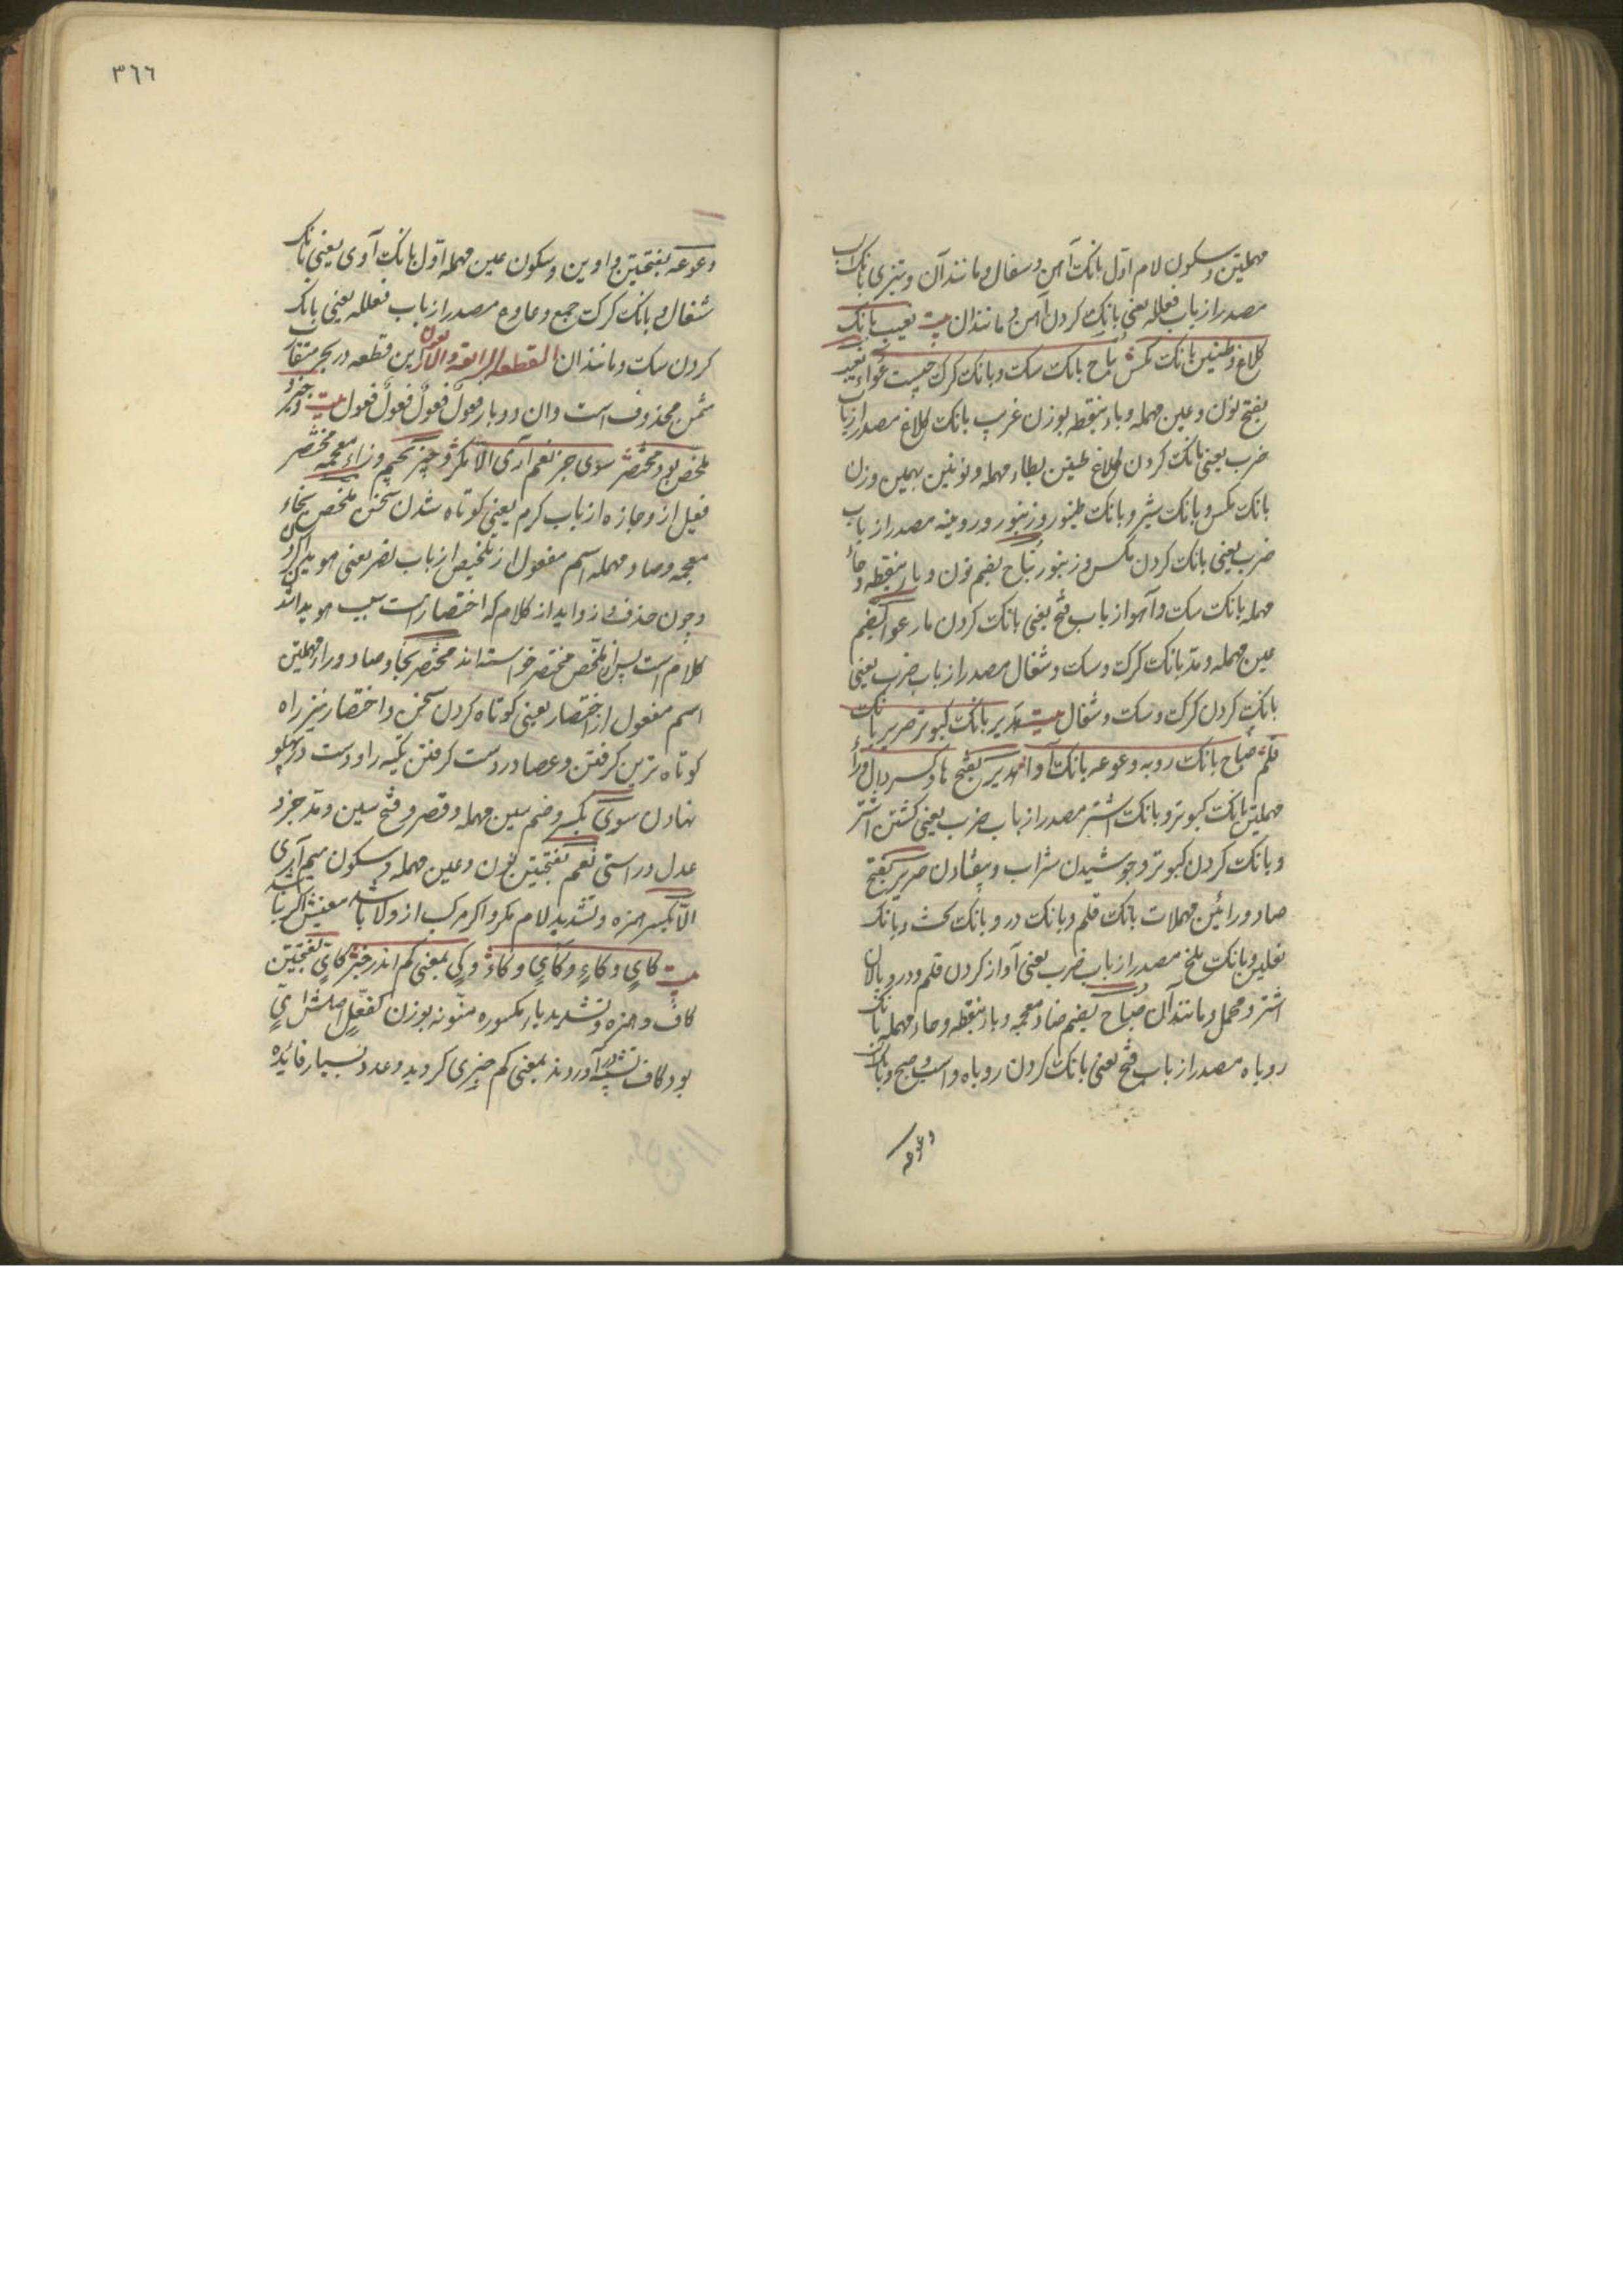 مهملتین و سکون لام اول بانک آهن و سفال و مانند آن و تیزی بانک اسب
مصدر از باب فعلله یعنی بانک کردن آهن و مانند ان بیت نعیب بانک
کلاغ و طنین بانک مکس نباح بانک سک و بانک کرک چیست عواء نعیب
بفتح نون و عین مهمله و باء بنقطه بوزن غریب بانک کلاغ مصدر از باب
ضرب یعنی بانک کردن کلاغ طنین بطاء مهمله و نونین بهمین وزن
بانک مکس و بانک شیر و بانک طنبور و زنبور و رویینه مصدر از باب
ضرب یعنی بانک کردن مکس و زنبور نباح بضم نون و باء بنقطه و حاء
مهمله بانک سک و آهو از باب فتح یعنی بانک کردن مار عواء بضم
عین مهمله و مد بانک کرک و سک و شغال مصدر از باب ضرب یعنی
بانک کردن کرک و سک و شغال بیت هدیر بانک کبوتر صریر بانک
قلم ضباح بانک روبه و وعوعه بانک آوا هدیر بفتح ها و کسر دال و راء
مهملتین بانک کبوتر و بانک اشتر مصدر از باب ضرب یعنی کشتن اشتر
و بانک کردن کبوتر و جوشیدن شراب و بیفتادن صریر بفتح
صاد و رائین مهملات بانک قلم و بانک در و بانک تخت و بانک
نعلین و بانک ملخ مصدر از باب ضرب یعنی آواز کردن قلم و در و پالان
اشتر و محمل و مانند آن ضباح بضم ضاد معجمه و باء بنقطه و حاء مهمله بانک
روباه مصدر از باب فتح یعنی بانک کردن روباه و اسب و صبح و بانک
وعوعه
٣٦٦
وعوعه بفتحتین واوین و سکون عین مهمله اول بانک آوی یعنی بانک
شغال و بانک کرک جمع وعاوع مصدر از باب فعلله یعنی بانک
کردن سک و مانند ان القطعه الرابعه و الاربعون این قطعه در بحر متقارب
مثمن محذوف است و ان دو بار فعولن فعولن فعولن فعول بیت وجیز و
ملخص بود مختصر سوی جز نعم آری الا مکر وجیز بجیم و زاء معجمه مختصر
فعیل از وجازه از باب کرم یعنی کوتاه شدن سخن ملخص بخاء
معجمه و صاد مهمله اسم مفعول از تلخیص از باب نصر یعنی هویدا کردن
و چون حذف زواید از کلام که اختصار است سبب هویدا شدن
کلام است پس از ملخص مختصر خواسته اند مختصر بخا و صاد و راء مهملتین
اسم مفعول از اختصار یعنی کوتاه کردن سخن و اختصار نیز راه
کوتاه ترین کرفتن و عصا در دست کرفتن تکیه را و دست در پهلو
نهادن سوی بکسر و ضم سین مهمله و قصر و فتح سین و مد جز و
عدل و راستی نعم بفتحتین نون و عین مهمله و سکون میم آری
الا بکسر همزه و تشدید لام مکر و اکر مرکب از و لا باشد معنیش اکر نباشد
بیت کای و کاء و کأی و کاء و کی بمعنی کم اندر خبر کای بفتحتین
کاف و همزه و تشدید یاء مکسوره منونه بوزن کفعل اصلش ای
بود کاف تشبیه در آوردند بمعنی کم خبری کردید و عدد بسیار فائده